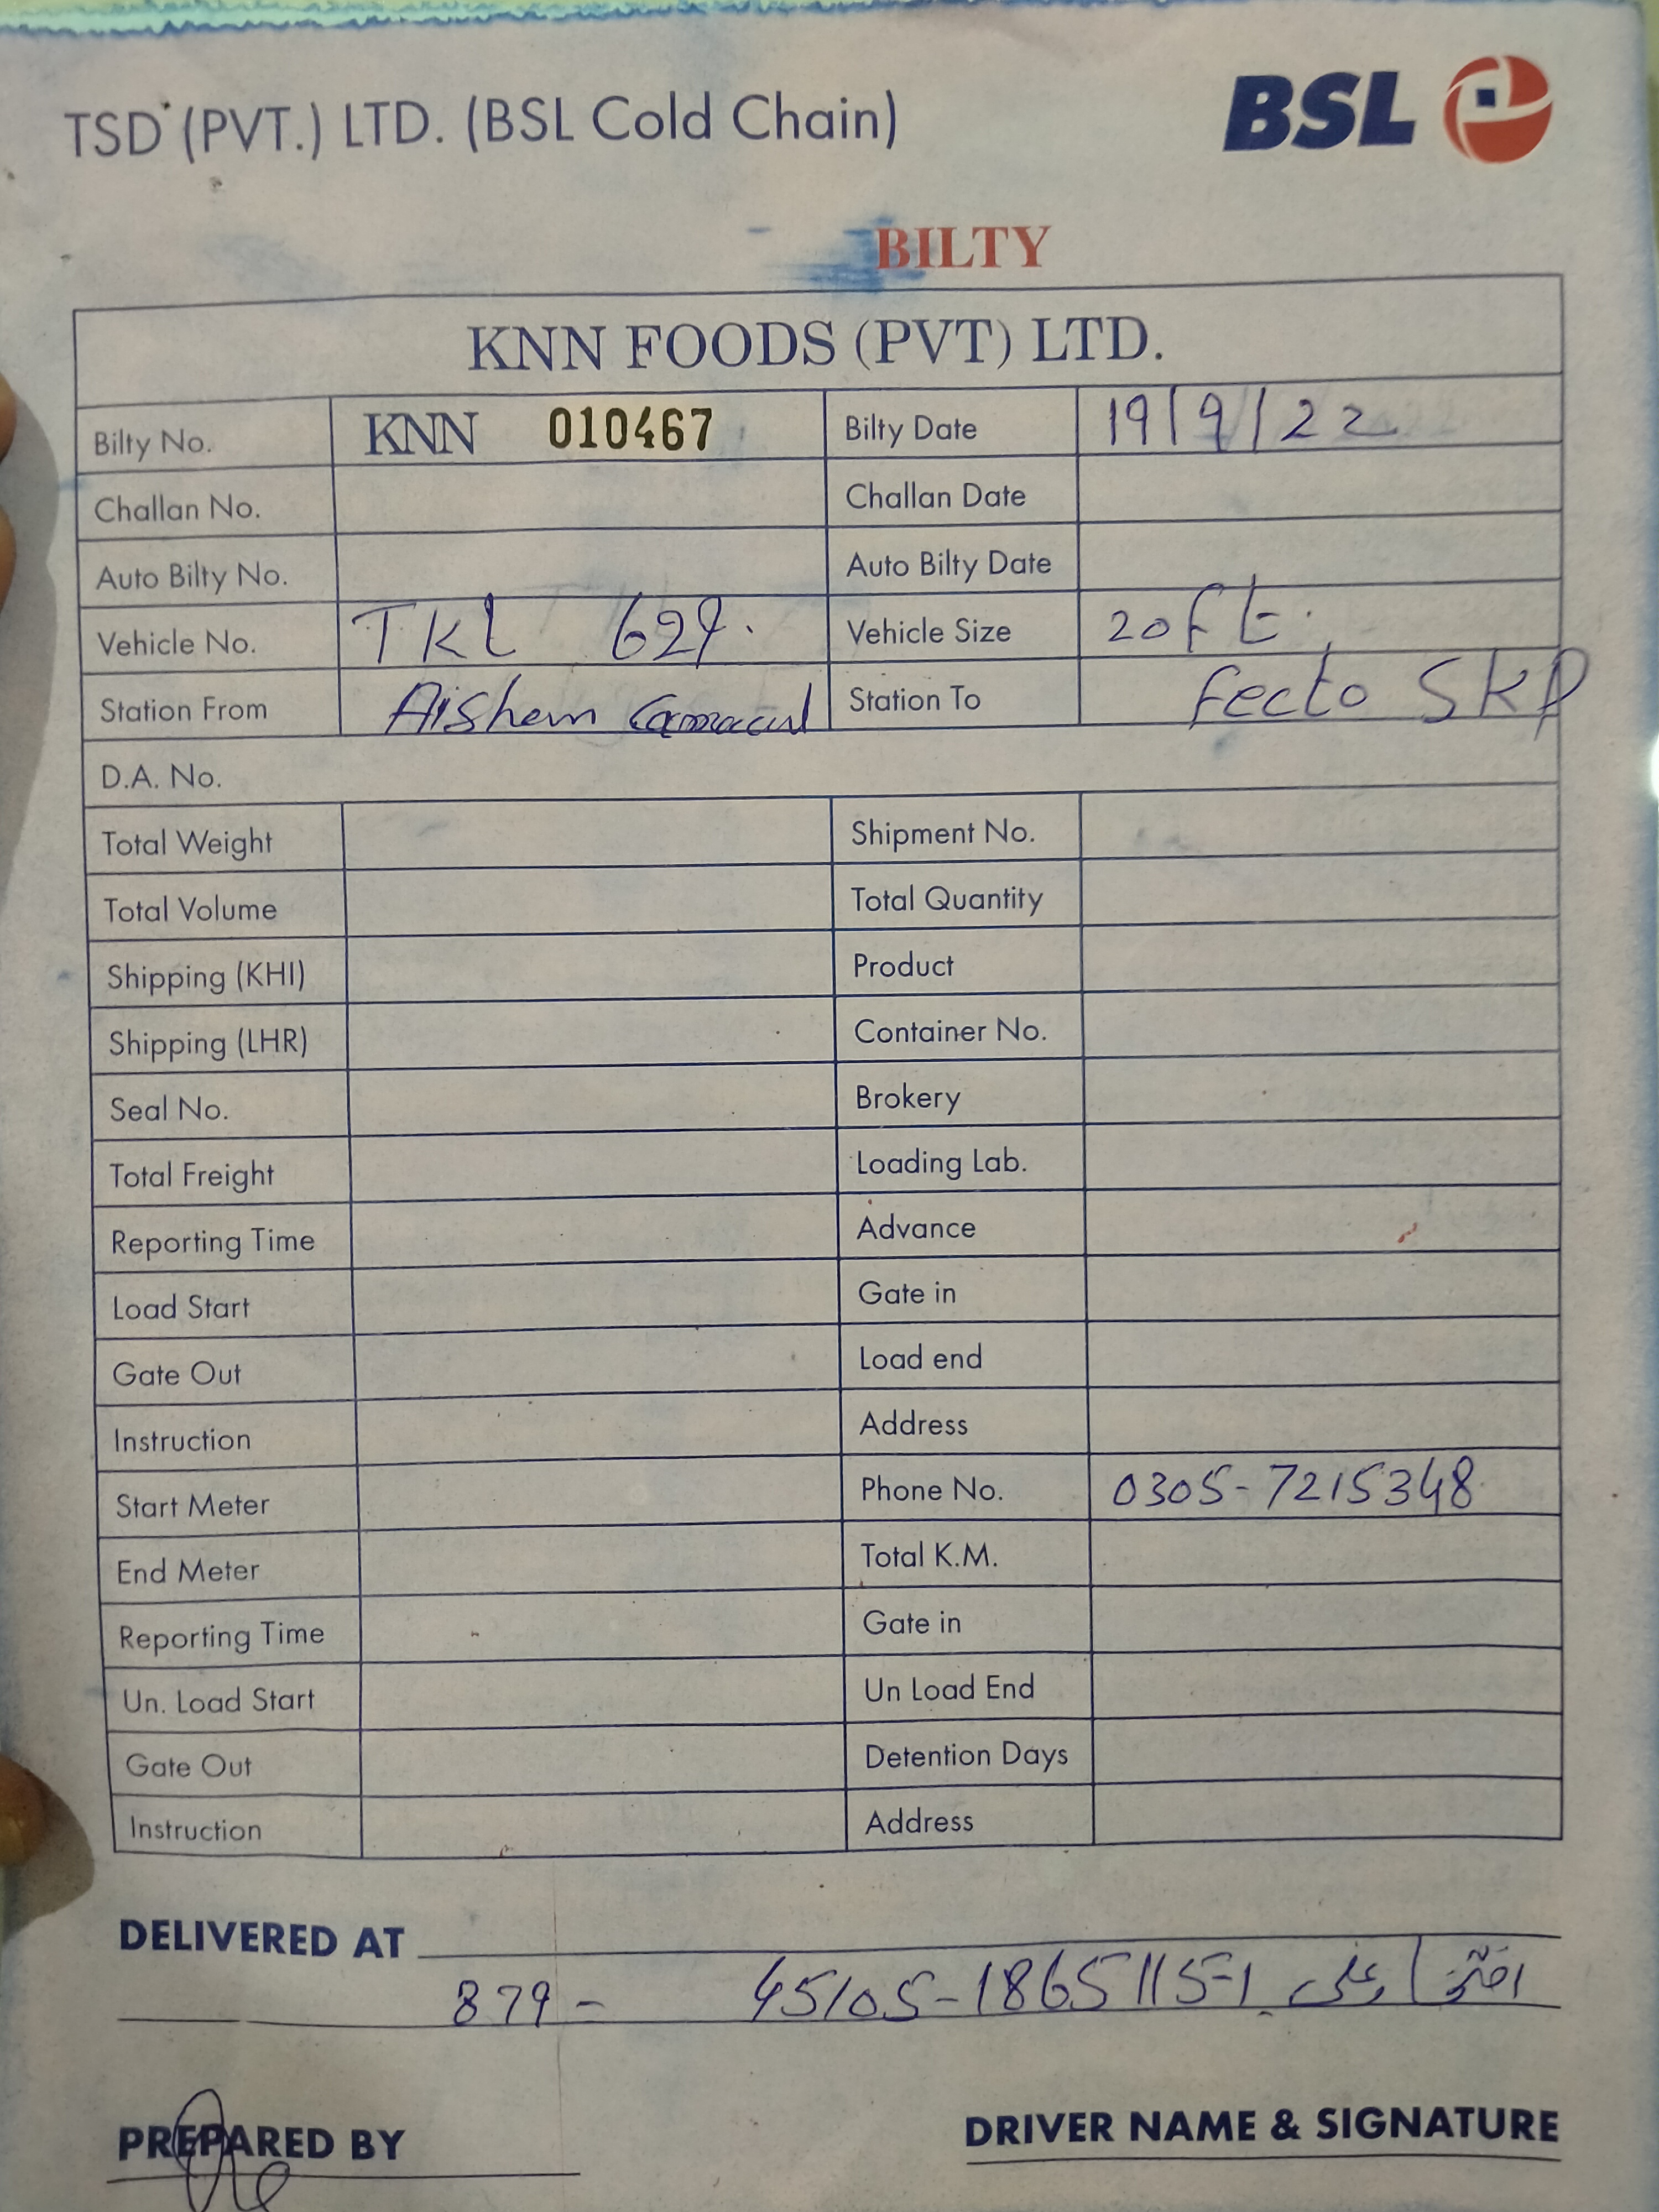 TSD (PVT.) LTD. (BSL Cold Chain) BSL
BILTY
KNN FOODS (PVT) LTD.
Bilty No. KNN 010467 Bilty Date 19/9/22
Challan No. Challan Date
Auto Bilty No. Auto Bilty Date
Vehicle No. TKL 629. Vehicle Size 20 ft.
Station From Station To Fecto SKP
D.A. No.
Total Weight Shipment No.
Total Volume Total Quantity
Shipping (KHI) Product
Shipping (LHR) Container No.
Seal No. Brokery
Total Freight Loading Lab.
Reporting Time Advance
Load Start Gate in
Gate Out Load end
Instruction Address
Start Meter Phone No. 0305-7215348
End Meter Total K.M.
Reporting Time Gate in
Un. Load Start Un Load End
Gate Out Detention Days
Instruction Address
DELIVERED AT
879 - 45105-1865115-1 علی
PREPARED BY DRIVER NAME & SIGNATURE